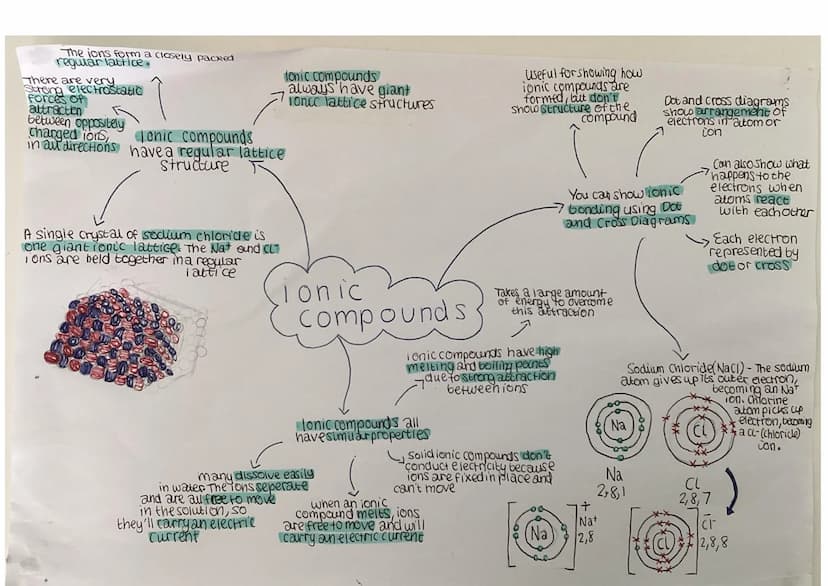 The ions form a closely packed
regular lattice.
There are very
strong electrostatic
forces of
attraction
between oppositely
charged ions,
in all directions
Ionic compounds
have a regular lattice
structure
Ionic compounds
always have giant
ionic lattice structures
A single crystal of sodium chloride is
one giant ionic lattice. The Na+ and Cl-
ions are held together in a regular
lattice
Ionic
compounds
Useful for showing how
ionic compounds are
formed, but don't
show structure of the
compound
Dot and Cross diagrams
show arrangement of
electrons in atom or
ion
Can also show what
happens to the
electrons when
atoms react
with each other
You can show ionic
bonding using Dot
and Cross Diagrams
Each electron
represented by
dot or cross
Takes a large amount
of energy to overcome
this attraction
Ionic compounds have high
melting and boiling points
due to strong attraction
between ions
Ionic compounds all
have similar properties
Solid ionic compounds don't
conduct electricity because
ions are fixed in place and
can't move
many dissolve easily
in water. The ions seperate
and are all free to move
in the solution, so
they'll carry an electric
current
when an ionic
compound melts, ions
are free to move and will
carry an electric current
Sodium Chloride (NaCl) - The sodium
atom gives up its outer electron,
becoming an Na+
ion. Chlorine
atom picks up
electron, becoming
a Cl- (chloride)
ion.
Na
Cl
Na
2,8,1
Cl
2,8,7
Na
+
Na+
2,8
Cl
-
Cl-
2,8,8